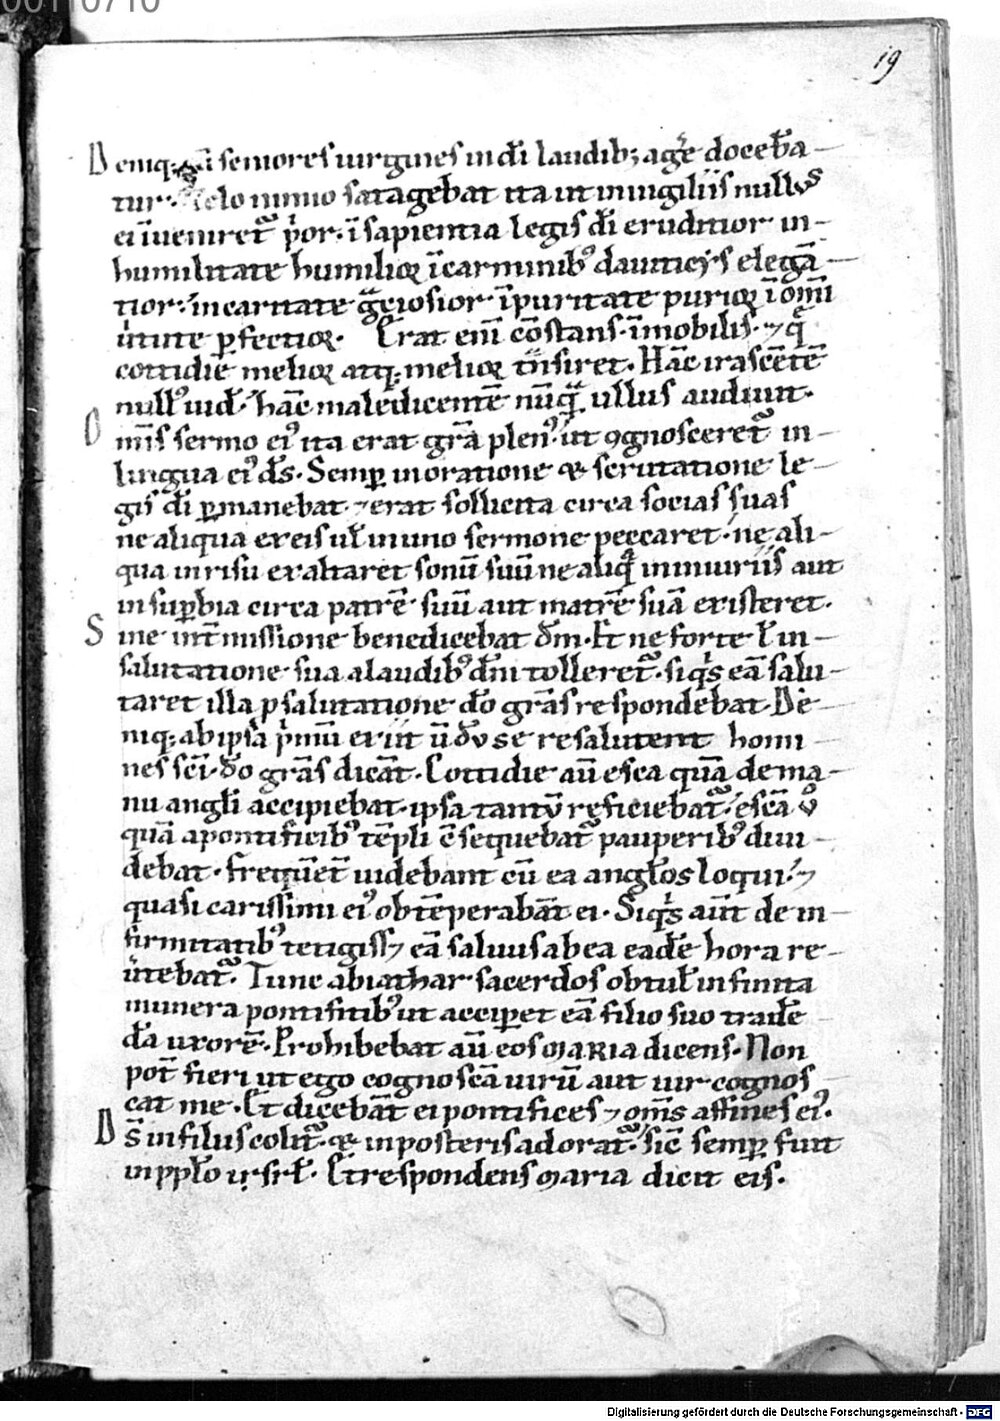 00110710
19
Deniq; cū seniores uirgines in dī laudib; agē doceba
tur. Zelo nimio satagebat ita ut in uigiliis nullus
ei īueniret᷑ p̍or. ī sapientia legis dī eruditior in
humilitate humilior ī carminib᷒ dauiticis elegā
tior. in caritate gͣciosior. ī puritate purior ī om̄i
uirtute ꝑfectior. Erat eni cōstans. īmobilis. ⁊ qͣ
cottidie melior atq; melior tͣnsiret. Hāc irascētē
null᷒ uid̄. hāc maledicentē nūqͣ ullus audiuit.
Omīs sermo ei᷒ ita erat grā plen᷒. ut ꝯgnosceret᷑ in
lingua ei᷒ d̄s. Semꝑ in oratione & scrutatione le
gis dī ꝑmanebat. ⁊ erat sollicita circa socias suas
ne aliqua ex eis uł in uno sermone peccaret. ne ali
qua in risu exaltaret sonū suū ne aliqͣ in iniuriis aut
in suꝑbia circa patrē suū aut matrē suā existeret.
Sine int̄missione benedicebat dn̄m. Et ne forte ł in
salutatione sua a laudib᷒ dn̄i tolleret᷑. siq̍s eā salu
taret illa p salutatione dō grās respondebat. De
niq; ab ipsa p̍mū exiit ū dū se resalutent homi
nes scī. dō grās dicāt. Cottidie aū esca quā de ma
nu angłi accipiebat. ipsa tantū reficiebat᷑. escā ū
quā a pontificib᷒ tēpli ꝯsequebat᷑ pauperib᷒ diui
debat. frequēt᷑ uidebant cū ea angłos loqui. ⁊
quasi carissimi ei᷒ obtēperabāt ei. Siq̍s aūt de in
firmitatib᷒ tetigiss⁊ eā saluus ab ea eadē hora re
ūtebat᷑. Tunc abiathar sacerdos obtuł infinita
munera pontificib᷒ ut acciꝑet eā filio suo tradē
dā uxorē. Prohibebat aū eos MARIA dicens. Non
pot̄ fieri ut ego cognoscā uirū aut uir cognos
cat me. Et dicebāt ei pontifices ⁊ om̄s affines ei᷒.
Ds̄ in filiis colit᷑. & in posteris adorat᷑. sic̄ semꝑ fuit
in ppło isrł. Et respondens maria dicit eis.
Digitalisierung gefördert durch die Deutsche Forschungsgemeinschaft - DFG